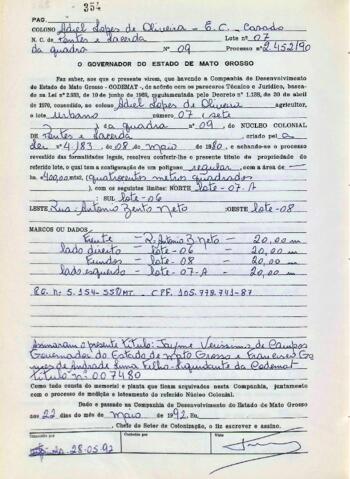 354
PAG.
COLONO Adiel Lopes de Oliveira - E.C. - Casado
N. C. de Pontes e Lacerda Lote nº 07
da quadra Nº 09 Processo nº 2.452/90
O GOVERNADOR DO ESTADO DE MATO GROSSO
Faz saber, aos que o presente virem, que havendo a Companhia de Desenvolvimento
do Estado de Mato Grosso - CODEMAT -, de acôrdo com os pareceres Técnico e Jurídico, basea-
do de 1970, concedido, ao colono Adiel Lopes de Oliveira agricultor,
o lote urbano número 07 (sete
) da quadra nº 09, do NÚCLEO COLONIAL
DE Pontes e Lacerda, criado pela
Lei nº 4.183, de 08 de maio de 1980, e achando-se o processo
revestido das formalidades legais, resolveu conferir-lhe o presente título de propriedade do
referido lote, o qual tem a configuração de um polígono regular, com a área de
400,00 m2, (quatrocentos metros quadrados
), com os seguintes limites: NORTE lote-07-A
: SUL lote-06
LESTE Rua-Antonio Bento Neto :OESTE lote-08
MARCOS OU DADOS
Frente - R. Antonio B. Neto - 20,00 m
lado direito - lote-06 - 20,00 m
Fundos - lote-08 - 20,00 m
lado esquerdo - lote-07-A - 20,00 m
Assinaram o presente título: Jayme Verissimo de Campos
Governador do Estado de Mato Grosso e Francisco Go
mes de Andrade Lima Filho-Liquidante da Codemat
título nº 007480
Como tudo consta do memorial e planta que ficam arquivados nesta Companhia, juntamente
com o processo de medição e loteamento do referido Núcleo Colonial.
Dado e passado na Companhia de Desenvolvimento do Estado de Mato Grosso
aos 22 dias do mês de maio de 1992. Eu,
, Chefe do Setor de Colonização, o fiz escrever e assino.
Conferido por
Visto
28.05.92